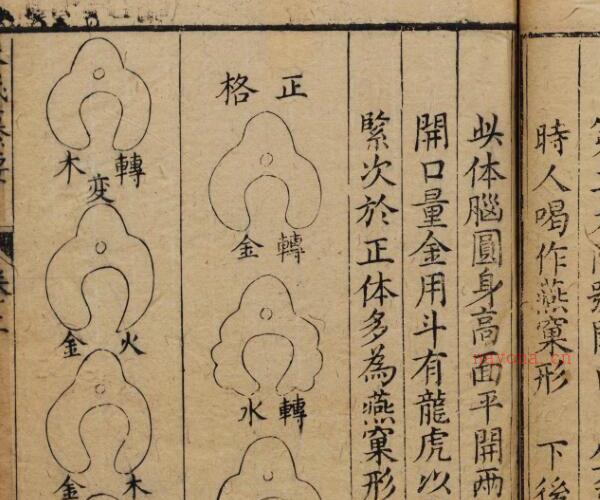 時人喝作燕窠形 下後
此体腦圓身高面平開兩
開口量金用斗有龍虎以
緊次於正体多為燕窠形
正格
轉金
轉水
轉木
變
火金
木金
nayona.cn